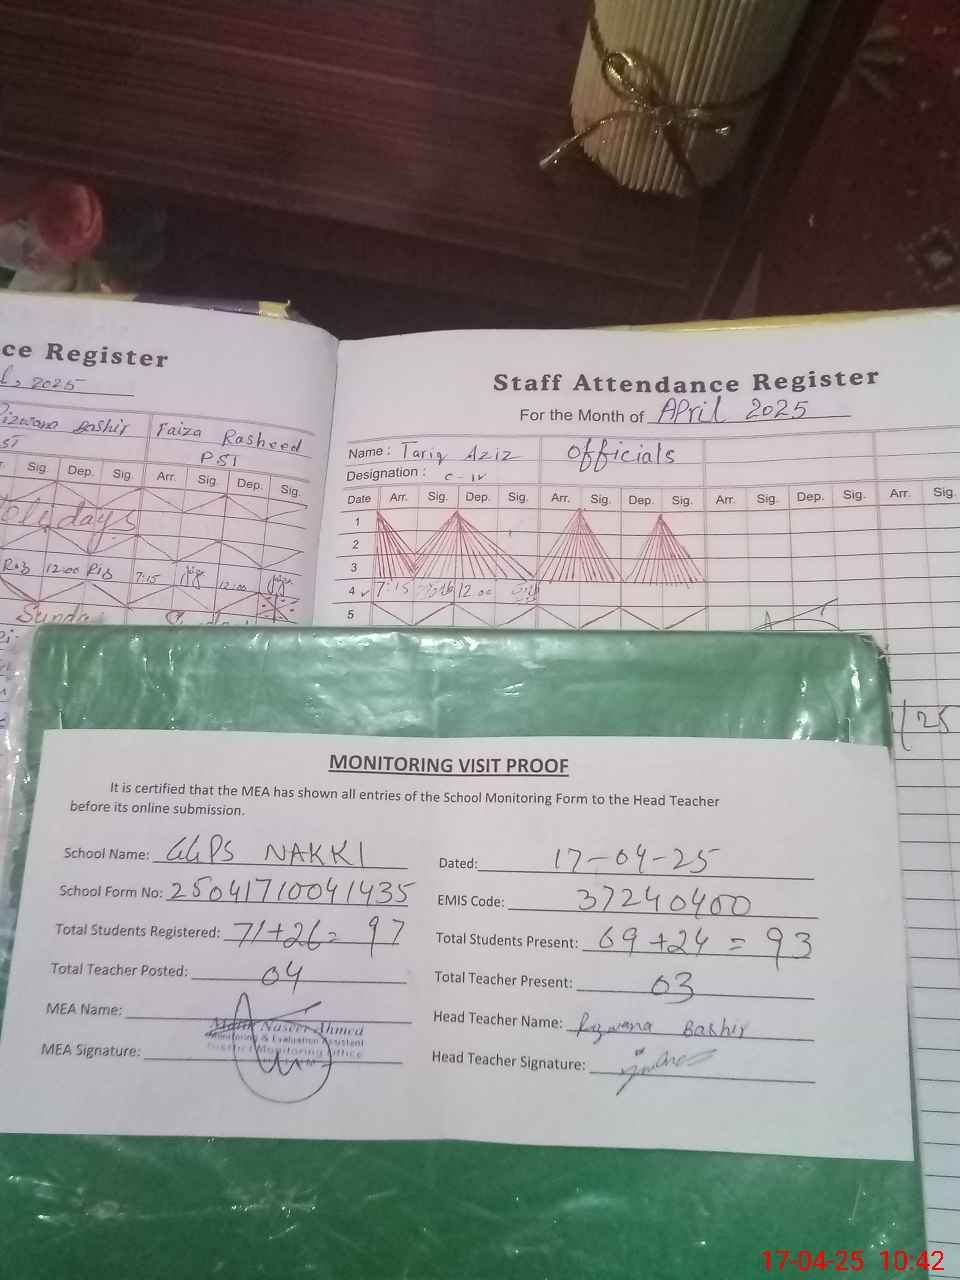 ce Register
2025
Rizwana Bashir Faiza Rasheed
PST
Sig. Dep. Sig. Arr. Sig. Dep. Sig.
Holydays
12:00 7:15 12:00
Sunday
Staff Attendance Register
For the Month of April 2025
Name : Tariq Aziz Officials
Designation : C-IV
Date Arr. Sig. Dep. Sig. Arr. Sig. Dep. Sig. Arr. Sig. Dep. Sig. Arr. Sig.
1
2
3
4 7:15 12:00
5
/25
MONITORING VISIT PROOF
It is certified that the MEA has shown all entries of the School Monitoring Form to the Head Teacher
before its online submission.
School Name: GGPS NAKKI
Dated: 17-04-25
School Form No: 25041710041435
EMIS Code: 37240400
Total Students Registered: 71+26= 97
Total Students Present: 69+24 = 93
Total Teacher Posted: 04
Total Teacher Present: 03
MEA Name: Malik Naseer Ahmed
Monitoring & Evaluation Assistant
District Monitoring Office
Head Teacher Name: Rizwana Bashir
MEA Signature:
Head Teacher Signature:
17-04-25 10:42